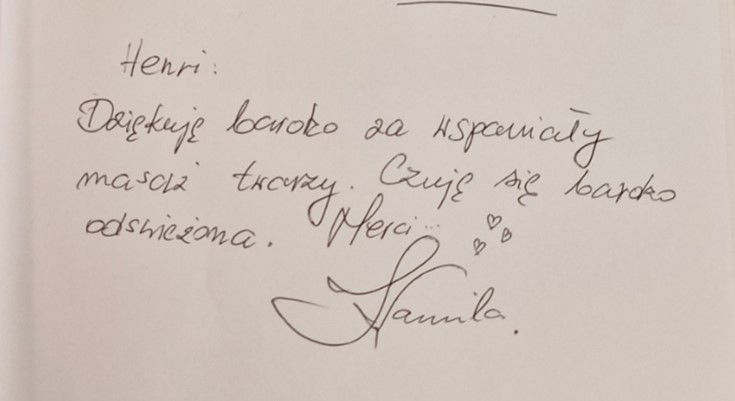 Henri:
Dziękuję bardzo za wspaniały
masaż twarzy. Czuję się bardzo
odświeżona. Merci...
Kamila.